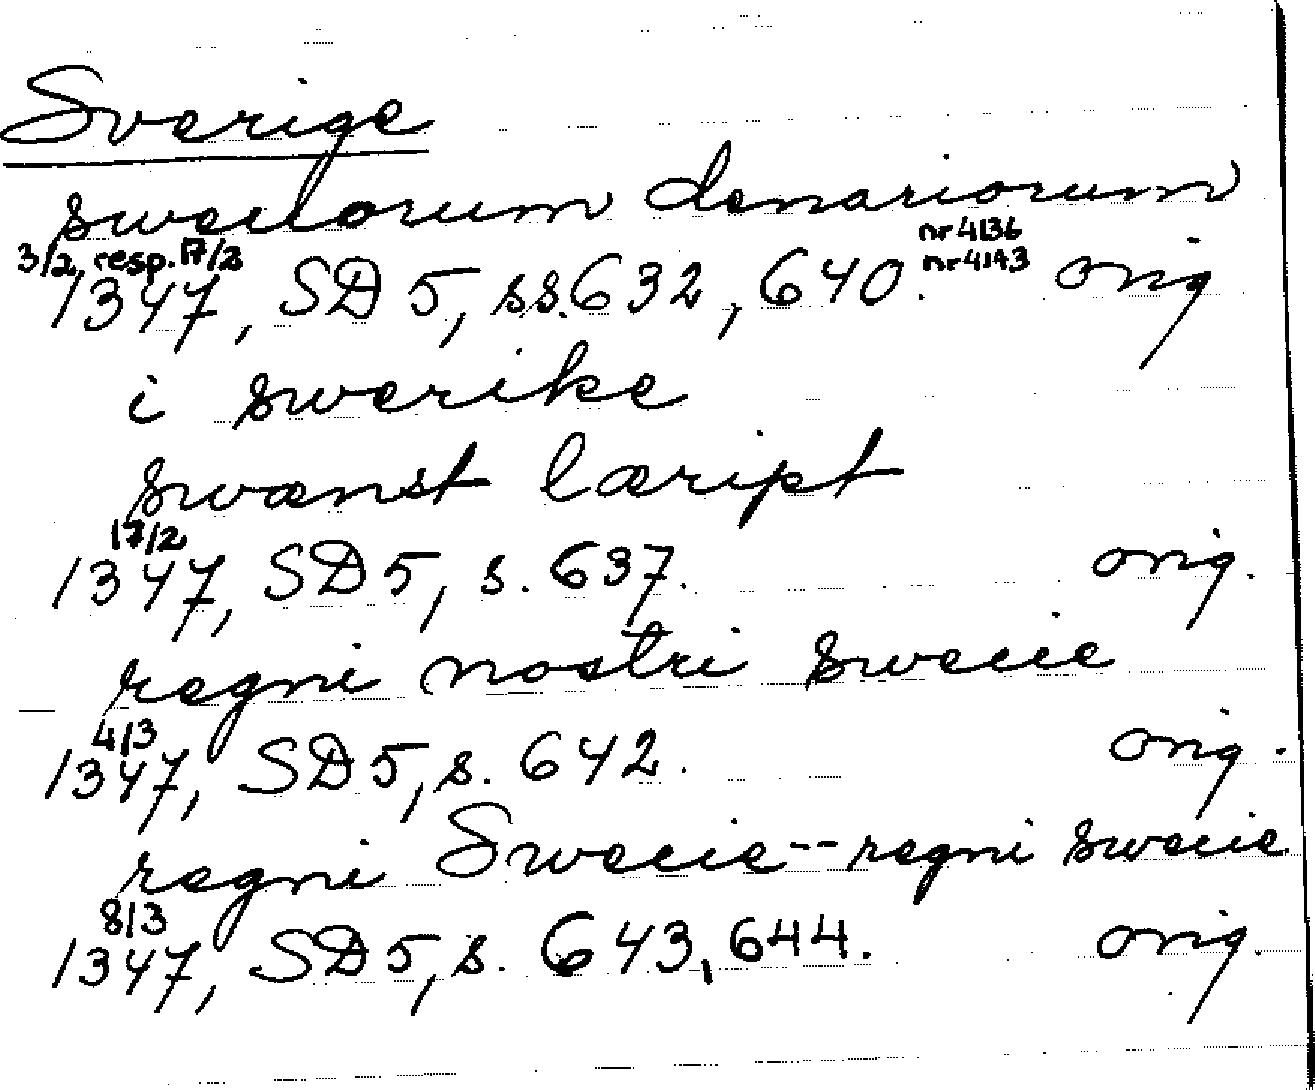 Sverige
sweuorum denariorum
3/2, resp. 17/2 nr 4136
1347, SD 5, ss. 632, 640. nr 4143 orig
i swerike
swænst læript
17/2
1347, SD 5, s. 637. orig.
regni nostri swecie
4/3
1347, SD 5, s. 642. orig.
regni Swecie -- regni swecie
8/3
1347, SD 5, s. 643, 644. orig.